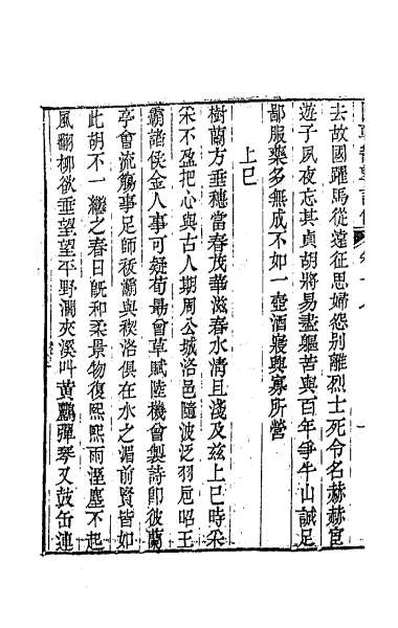 去故國躍馬從遠征思婦怨別離烈士死令名赫赫宦
遊子夙夜忘其貞胡將易盡軀苦與百年爭牛山誠足
鄙服藥多無成不如一壺酒寢興寡所營
上巳
樹蘭方垂穗當春茂華滋春水清且淺及兹上巳時采
采不盈把心與古人期周公城洛邑隨波泛羽卮昭王
霸諸侯金人事可疑荀勗曾草賦陸機曾製詩卽彼蘭
亭會流觴事足師祓灞與禊洛俱在水之湄前賢皆如
此胡不一繼之春日旣和柔景物復熙熙雨溼塵不起
風翻柳欲垂望望平野濶夾溪叫黃鸝彈琴又鼓缶連